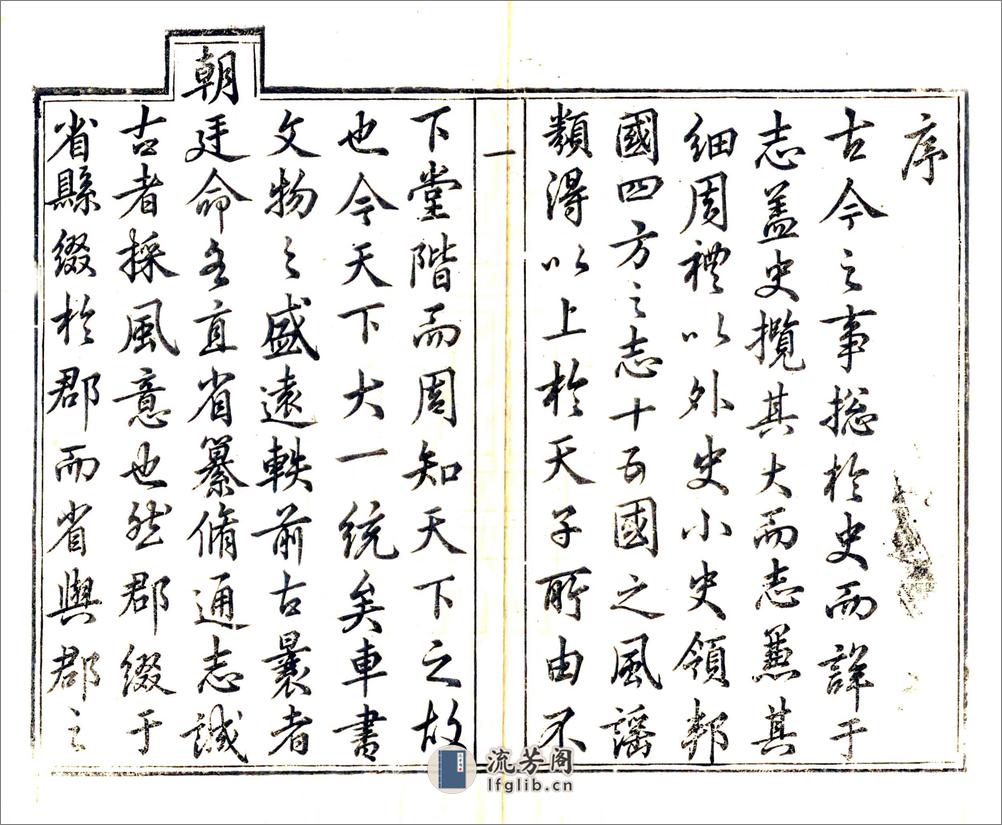 序
古今之事捴於史而詳于
志盖史攬其大而志蕪其
細周禮以外史小史領邦
國四方之志十五國之風謡
類得以上於天子所由不
一
下堂階而周知天下之故
也今天下大一統矣車書
文物之盛遠軼前古曩者
朝
廷命各直省纂脩通志誠
古者採風意也然郡綴于
省縣綴於郡而省與郡之
流芳阁
lfglib.cn